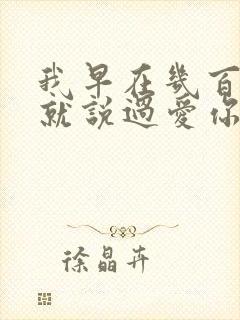 我早在幾百
就說過愛你
徐晶卉